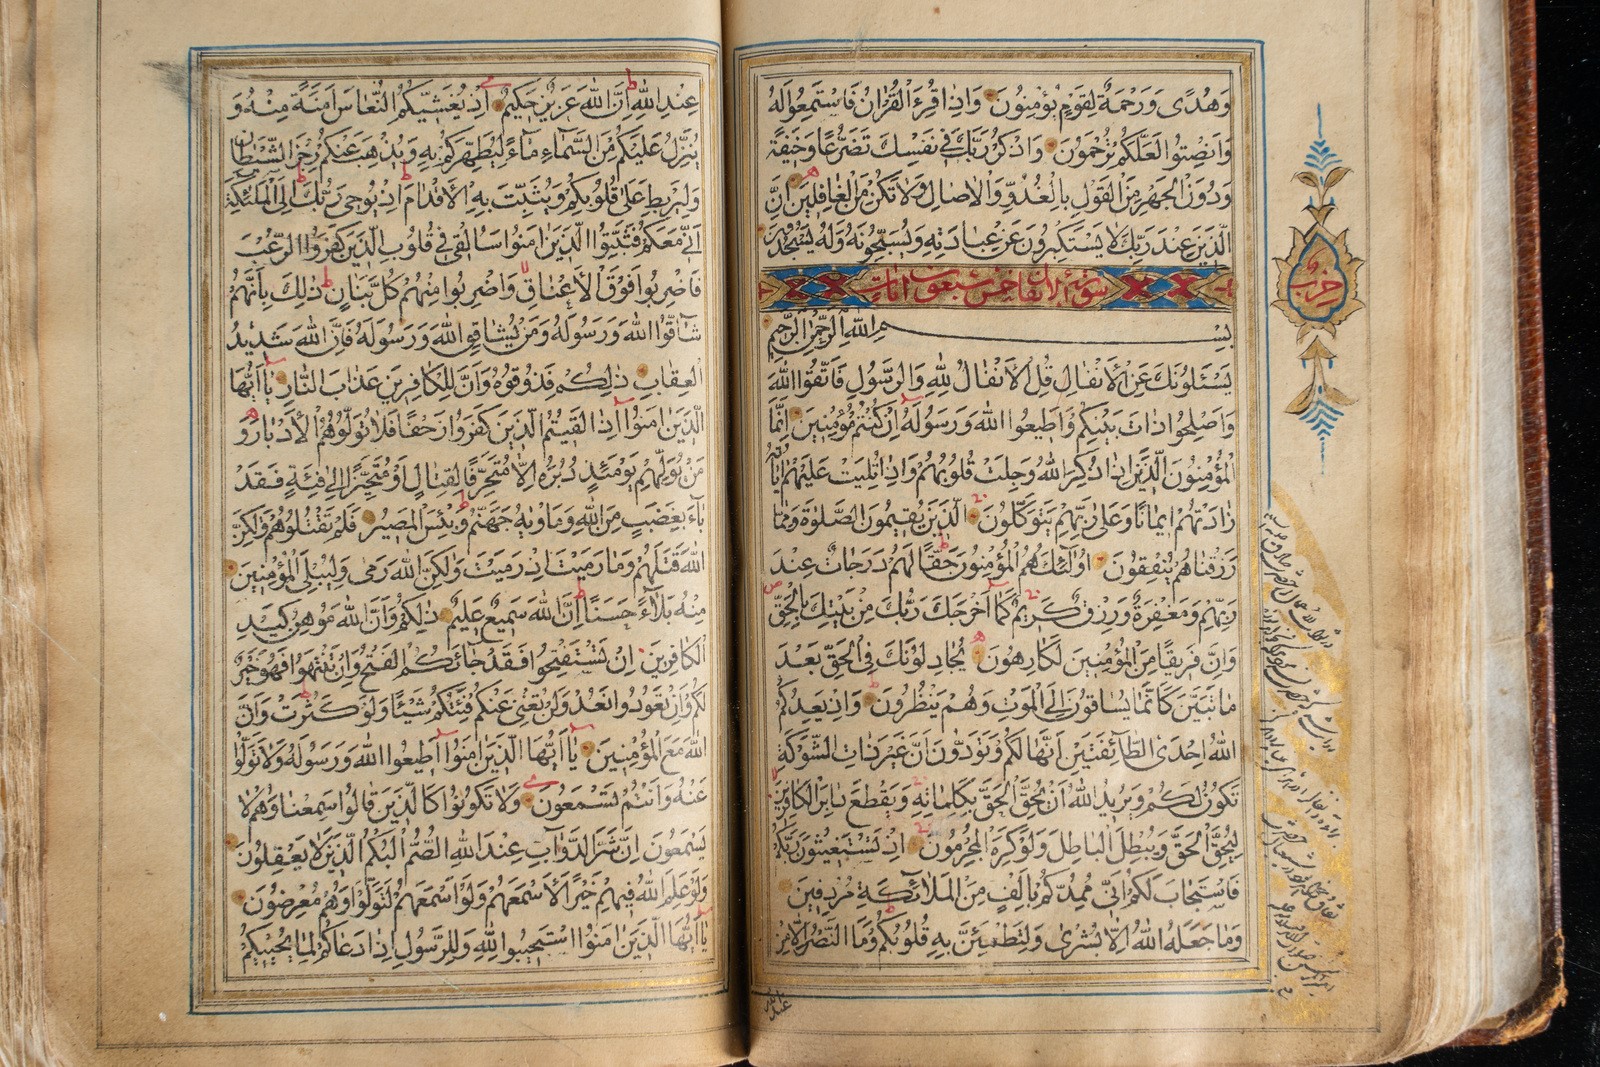 وَهُدًى وَرَحْمَةً لِقَوْمٍ يُؤْمِنُونَ وَاِذَا قُرِءَ الْقُرْاٰنُ فَاسْتَمِعُوا لَهُ
وَاَنْصِتُوا لَعَلَّكُمْ تُرْحَمُونَ وَاذْكُرْ رَبَّكَ فِي نَفْسِكَ تَضَرُّعًا وَخِيفَةً
وَدُونَ الْجَهْرِ مِنَ الْقَوْلِ بِالْغُدُوِّ وَالْاٰصَالِ وَلَا تَكُنْ مِنَ الْغَافِلِينَ اِنَّ
الَّذِينَ عِنْدَ رَبِّكَ لَا يَسْتَكْبِرُونَ عَنْ عِبَادَتِهِ وَيُسَبِّحُونَهُ وَلَهُ يَسْجُدُونَ
سورة الانفال خمس سبعون ايات
حزب
بِسْمِ اللّٰهِ الرَّحْمٰنِ الرَّحِيمِ
يَسْئَلُونَكَ عَنِ الْاَنْفَالِ قُلِ الْاَنْفَالُ لِلّٰهِ وَالرَّسُولِ فَاتَّقُوا اللّٰهَ
وَاَصْلِحُوا ذَاتَ بَيْنِكُمْ وَاَطِيعُوا اللّٰهَ وَرَسُولَهُ اِنْ كُنْتُمْ مُؤْمِنِينَ اِنَّمَا
الْمُؤْمِنُونَ الَّذِينَ اِذَا ذُكِرَ اللّٰهُ وَجِلَتْ قُلُوبُهُمْ وَاِذَا تُلِيَتْ عَلَيْهِمْ اٰيَاتُهُ
زَادَتْهُمْ اِيمَانًا وَعَلٰى رَبِّهِمْ يَتَوَكَّلُونَ الَّذِينَ يُقِيمُونَ الصَّلٰوةَ وَمِمَّا
رَزَقْنَاهُمْ يُنْفِقُونَ اُولٰئِكَ هُمُ الْمُؤْمِنُونَ حَقًّا لَهُمْ دَرَجَاتٌ عِنْدَ
رَبِّهِمْ وَمَغْفِرَةٌ وَرِزْقٌ كَرِيمٌ كَمَا اَخْرَجَكَ رَبُّكَ مِنْ بَيْتِكَ بِالْحَقِّ
وَاِنَّ فَرِيقًا مِنَ الْمُؤْمِنِينَ لَكَارِهُونَ يُجَادِلُونَكَ فِي الْحَقِّ بَعْدَ
مَا تَبَيَّنَ كَاَنَّمَا يُسَاقُونَ اِلَى الْمَوْتِ وَهُمْ يَنْظُرُونَ وَاِذْ يَعِدُكُمُ
اللّٰهُ اِحْدَى الطَّائِفَتَيْنِ اَنَّهَا لَكُمْ وَتَوَدُّونَ اَنَّ غَيْرَ ذَاتِ الشَّوْكَةِ
تَكُونُ لَكُمْ وَيُرِيدُ اللّٰهُ اَنْ يُحِقَّ الْحَقَّ بِكَلِمَاتِهِ وَيَقْطَعَ دَابِرَ الْكَافِرِينَ
لِيُحِقَّ الْحَقَّ وَيُبْطِلَ الْبَاطِلَ وَلَوْ كَرِهَ الْمُجْرِمُونَ اِذْ تَسْتَغِيثُونَ رَبَّكُمْ
فَاسْتَجَابَ لَكُمْ اَنِّي مُمِدُّكُمْ بِاَلْفٍ مِنَ الْمَلَائِكَةِ مُرْدِفِينَ
وَمَا جَعَلَهُ اللّٰهُ اِلَّا بُشْرٰى وَلِتَطْمَئِنَّ بِهِ قُلُوبُكُمْ وَمَا النَّصْرُ اِلَّا مِنْ
عند الله
عِنْدِ اللّٰهِ اِنَّ اللّٰهَ عَزِيزٌ حَكِيمٌ اِذْ يُغَشِّيكُمُ النُّعَاسَ اَمَنَةً مِنْهُ وَ
يُنَزِّلُ عَلَيْكُمْ مِنَ السَّمَاءِ مَاءً لِيُطَهِّرَكُمْ بِهِ وَيُذْهِبَ عَنْكُمْ رِجْزَ الشَّيْطَانِ
وَلِيَرْبِطَ عَلٰى قُلُوبِكُمْ وَيُثَبِّتَ بِهِ الْاَقْدَامَ اِذْ يُوحِي رَبُّكَ اِلَى الْمَلٰئِكَةِ
اَنِّي مَعَكُمْ فَثَبِّتُوا الَّذِينَ اٰمَنُوا سَاُلْقِي فِي قُلُوبِ الَّذِينَ كَفَرُوا الرُّعْبَ
فَاضْرِبُوا فَوْقَ الْاَعْنَاقِ وَاضْرِبُوا مِنْهُمْ كُلَّ بَنَانٍ ذٰلِكَ بِاَنَّهُمْ
شَاقُّوا اللّٰهَ وَرَسُولَهُ وَمَنْ يُشَاقِقِ اللّٰهَ وَرَسُولَهُ فَاِنَّ اللّٰهَ شَدِيدُ
الْعِقَابِ ذٰلِكُمْ فَذُوقُوهُ وَاَنَّ لِلْكَافِرِينَ عَذَابَ النَّارِ يَا اَيُّهَا
الَّذِينَ اٰمَنُوا اِذَا لَقِيتُمُ الَّذِينَ كَفَرُوا زَحْفًا فَلَا تُوَلُّوهُمُ الْاَدْبَارَ وَ
مَنْ يُوَلِّهِمْ يَوْمَئِذٍ دُبُرَهُ اِلَّا مُتَحَرِّفًا لِقِتَالٍ اَوْ مُتَحَيِّزًا اِلٰى فِئَةٍ فَقَدْ
بَاءَ بِغَضَبٍ مِنَ اللّٰهِ وَمَاْوٰيهُ جَهَنَّمُ وَبِئْسَ الْمَصِيرُ فَلَمْ تَقْتُلُوهُمْ وَلٰكِنَّ
اللّٰهَ قَتَلَهُمْ وَمَا رَمَيْتَ اِذْ رَمَيْتَ وَلٰكِنَّ اللّٰهَ رَمٰى وَلِيُبْلِيَ الْمُؤْمِنِينَ
مِنْهُ بَلَاءً حَسَنًا اِنَّ اللّٰهَ سَمِيعٌ عَلِيمٌ ذٰلِكُمْ وَاَنَّ اللّٰهَ مُوهِنُ كَيْدِ
الْكَافِرِينَ اِنْ تَسْتَفْتِحُوا فَقَدْ جَائَكُمُ الْفَتْحُ وَاِنْ تَنْتَهُوا فَهُوَ خَيْرٌ
لَكُمْ وَاِنْ تَعُودُوا نَعُدْ وَلَنْ تُغْنِيَ عَنْكُمْ فِئَتُكُمْ شَيْئًا وَلَوْ كَثُرَتْ وَاَنَّ
اللّٰهَ مَعَ الْمُؤْمِنِينَ يَا اَيُّهَا الَّذِينَ اٰمَنُوا اَطِيعُوا اللّٰهَ وَرَسُولَهُ وَلَا تَوَلَّوْا
عَنْهُ وَاَنْتُمْ تَسْمَعُونَ وَلَا تَكُونُوا كَالَّذِينَ قَالُوا سَمِعْنَا وَهُمْ لَا
يَسْمَعُونَ اِنَّ شَرَّ الدَّوَابِّ عِنْدَ اللّٰهِ الصُّمُّ الْبُكْمُ الَّذِينَ لَا يَعْقِلُونَ
وَلَوْ عَلِمَ اللّٰهُ فِيهِمْ خَيْرًا لَاَسْمَعَهُمْ وَلَوْ اَسْمَعَهُمْ لَتَوَلَّوْا وَهُمْ مُعْرِضُونَ
يَا اَيُّهَا الَّذِينَ اٰمَنُوا اسْتَجِيبُوا لِلّٰهِ وَلِلرَّسُولِ اِذَا دَعَاكُمْ لِمَا يُحْيِيكُمْ